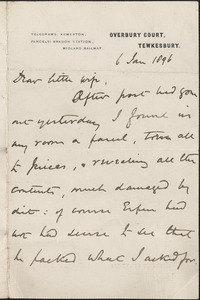 TELEGRAMS. KEMERTON.
PARCELS. BREDON STATION,
MIDLAND RAILWAY.
OVERBURY COURT,
TEWKESBURY.
6 Jan 1896
Dear little wife,
After post had gone
out yesterday I found in
my room a parcel, torn all
to pieces, & revealing all the
contents, much damaged by
dirt: of course had
not had sense to see that
he packed what I asked for